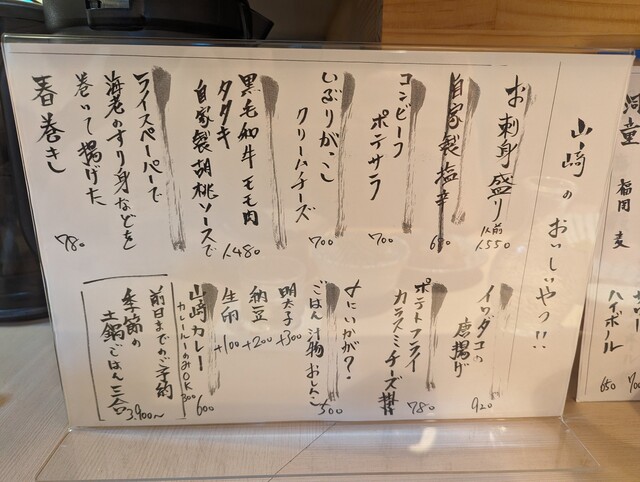 山崎のおいしいやつ!!
お刺身盛り 1人前 1,550
自家製塩辛 680
コンビーフ
ポテサラ
700
いぶりがっこ
クリームチーズ
700
黒毛和牛モモ肉
タタキ
自家製胡桃ソースで
1,480
ライスペーパーで
海老のすり身などを
巻いて揚げた
春巻き
780
イワダコの
唐揚げ
920
ポテトフライ
カラスミチーズ掛け
780
〆にいかが?
ごはん 汁物 おしんこ
500
明太子 +300
納豆 +200
生卵 +100
山崎カレー 600
カレールーのみOK 300
前日までのご予約
季節の
土鍋ごはん 三合
3,900〜
河童
福岡 麦
ハイボール
650